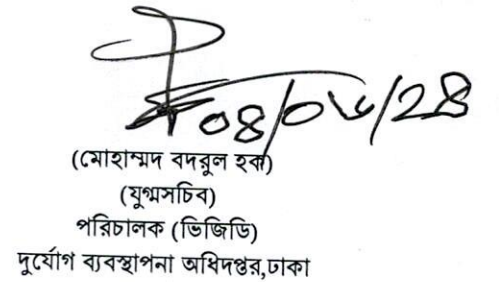 ০৪/০৬/২৪
(মোহাম্মদ বদরুল হক)
(যুগ্মসচিব)
পরিচালক (ভিজিডি)
দুর্যোগ ব্যবস্থাপনা অধিদপ্তর,ঢাকা